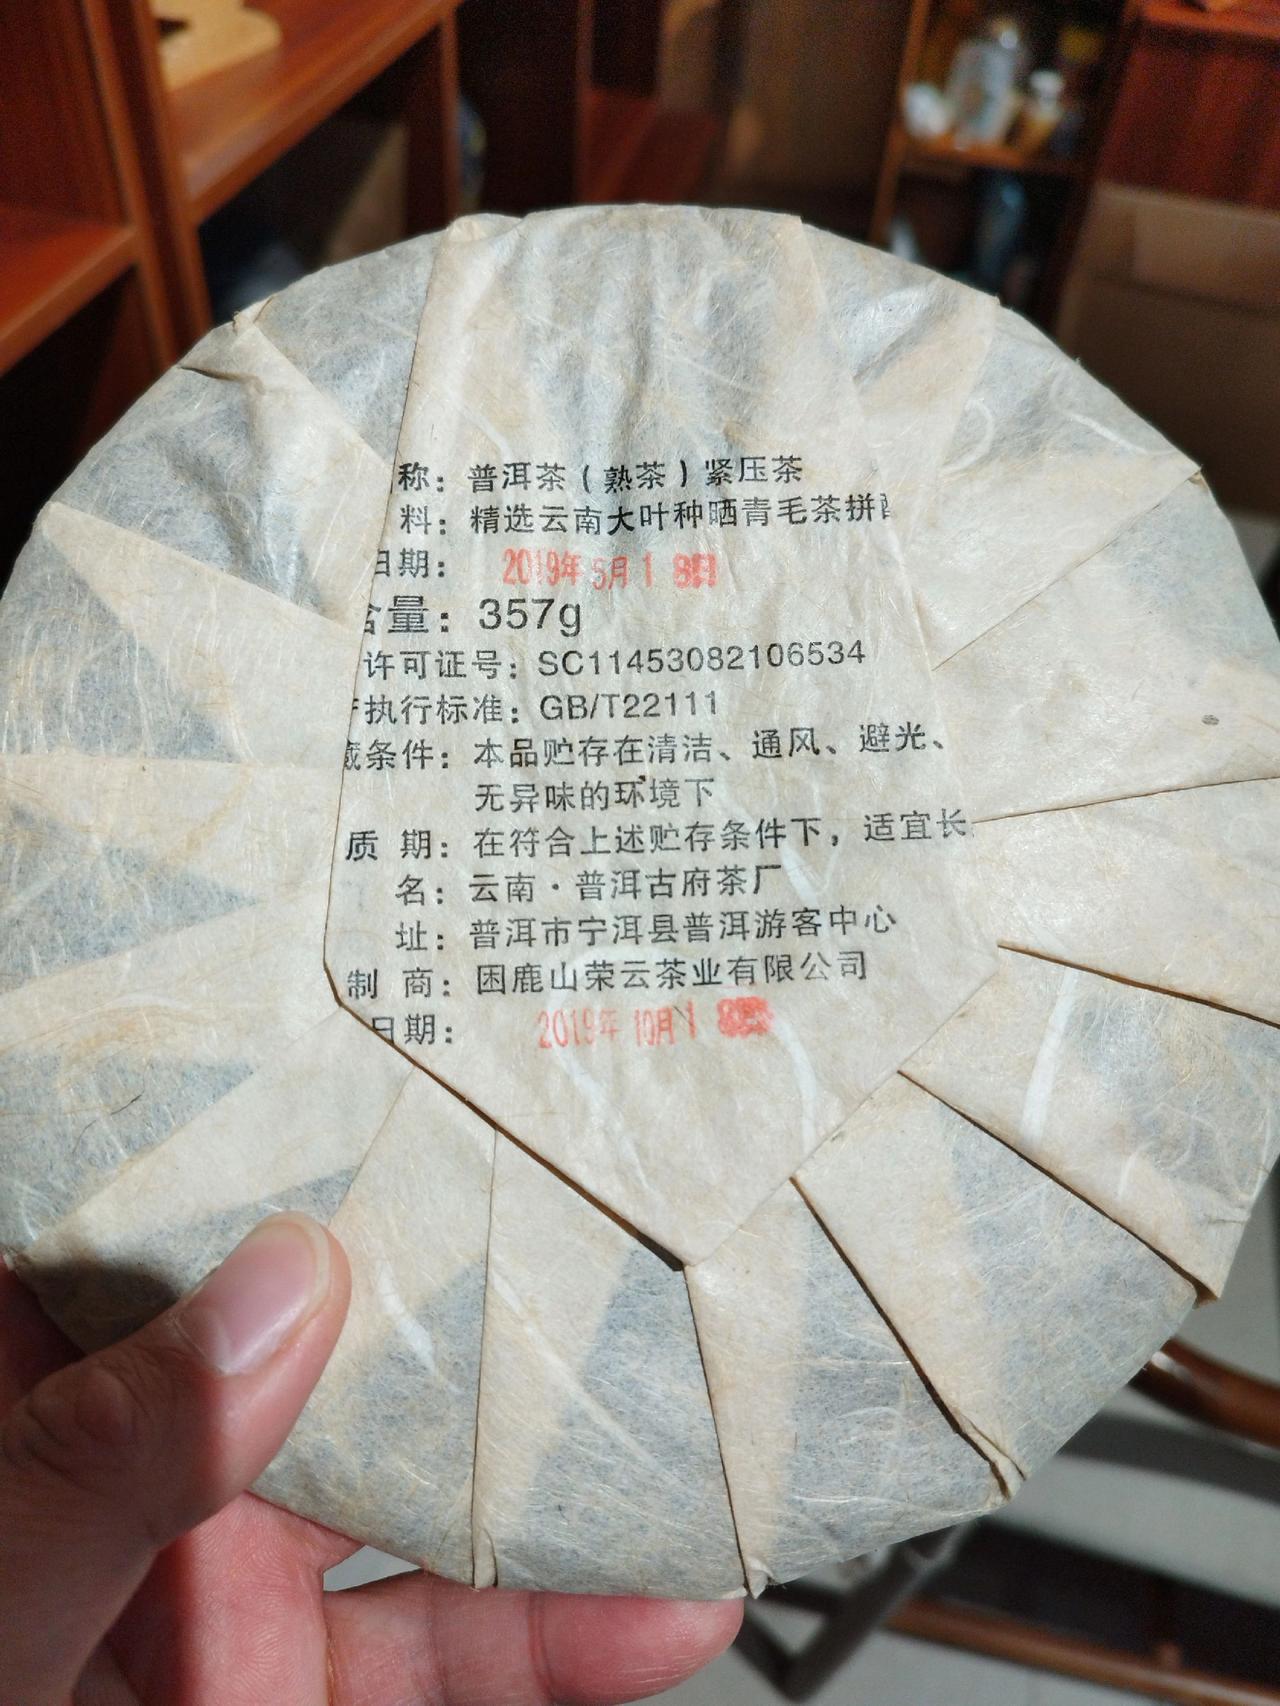 称：普洱茶（熟茶）紧压茶
料：精选云南大叶种晒青毛茶拼
日期：2019年5月18日
含量：357g
许可证号：SC11453082106534
执行标准：GB/T22111
藏条件：本品贮存在清洁、通风、避光、
无异味的环境下
质 期：在符合上述贮存条件下，适宜长
名：云南·普洱古府茶厂
址：普洱市宁洱县普洱游客中心
制 商：困鹿山荣云茶业有限公司
日期：2019年10月1